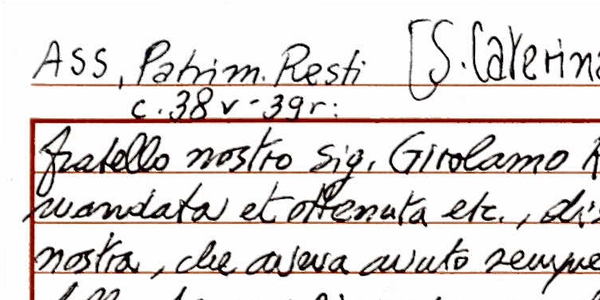 ASS, Patrim. Resti [S. Caterina
c. 38v - 39r:
fratello nostro sig. Girolamo
mandata et ottenuta etc.,
nostra, che aveva avuto sempre